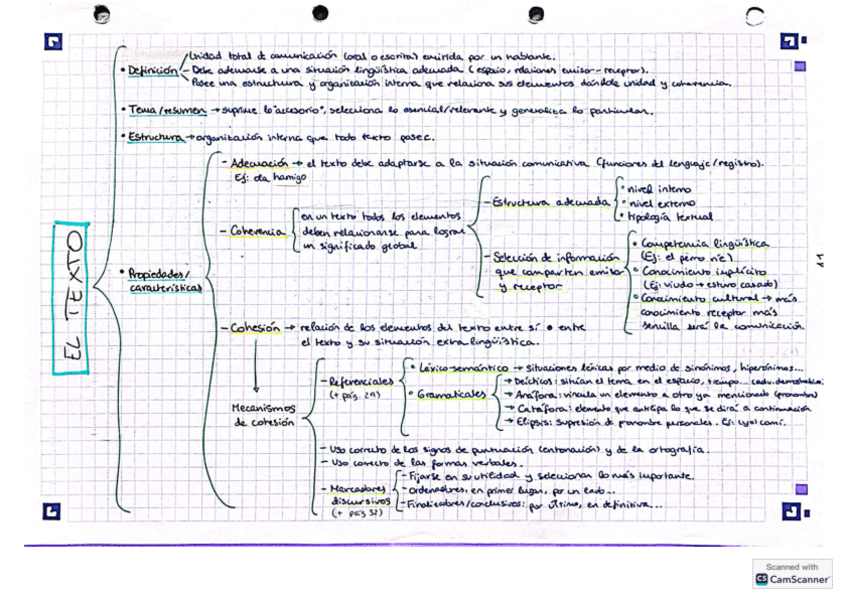 EL TEXTO
• Definición
Unidad total de comunicación (oral o escrita) emitida por un hablante.
- Debe adecuarse a una situación lingüística adecuada (espacio, relaciones emisor-receptor).
Posee una estructura y organización interna que relaciona sus elementos dándole unidad y coherencia.
• Tema/resumen → suprime lo "accesorio", selecciona lo esencial/relevante y generaliza lo particular.
• Estructura → organización interna que todo texto posee.
• Propiedades/
características
- Adecuación → el texto debe adaptarse a la situación comunicativa (funciones del lenguaje/registro).
Ej: ola hamigo
- Coherencia
en un texto todos los elementos
deben relacionarse para lograr
un significado global
- Estructura adecuada
• nivel interno
• nivel externo
• tipología textual
- Selección de información
que comparten emisor
y receptor
• Competencia lingüística
(Ej: el perro )
• Conocimiento implícito
(Ej: viudo → estuvo casado)
• Conocimiento cultural → más
conocimiento receptor más
sencilla será la comunicación.
- Cohesión → relación de los elementos del texto entre sí • entre
el texto y su situación extralingüística.
Mecanismos
de cohesión
- Referenciales
(+ pág. 29)
• Léxico-semántico → situaciones léxicas por medio de sinónimos, hiperónimos...
• Gramaticales
→ Deícticos: sitúan el tema en el espacio, tiempo...
→ Anáfora: vincula un elemento a otro ya mencionado (pronombre)
→ Catáfora: elemento que anticipa lo que se dirá a continuación
→ Elipsis: supresión de pronombre personales. Ej: (yo) comí.
- Uso correcto de los signos de puntuación (entonación) y de la ortografía.
- Uso correcto de las formas verbales.
- Marcadores
discursivos
(+ pág 32)
- Fijarse en su utilidad y seleccionar lo más importante.
- Ordenadores: en primer lugar, por un lado...
- Finalizadores/conclusivos: por último, en definitiva...
Scanned with
CS CamScanner